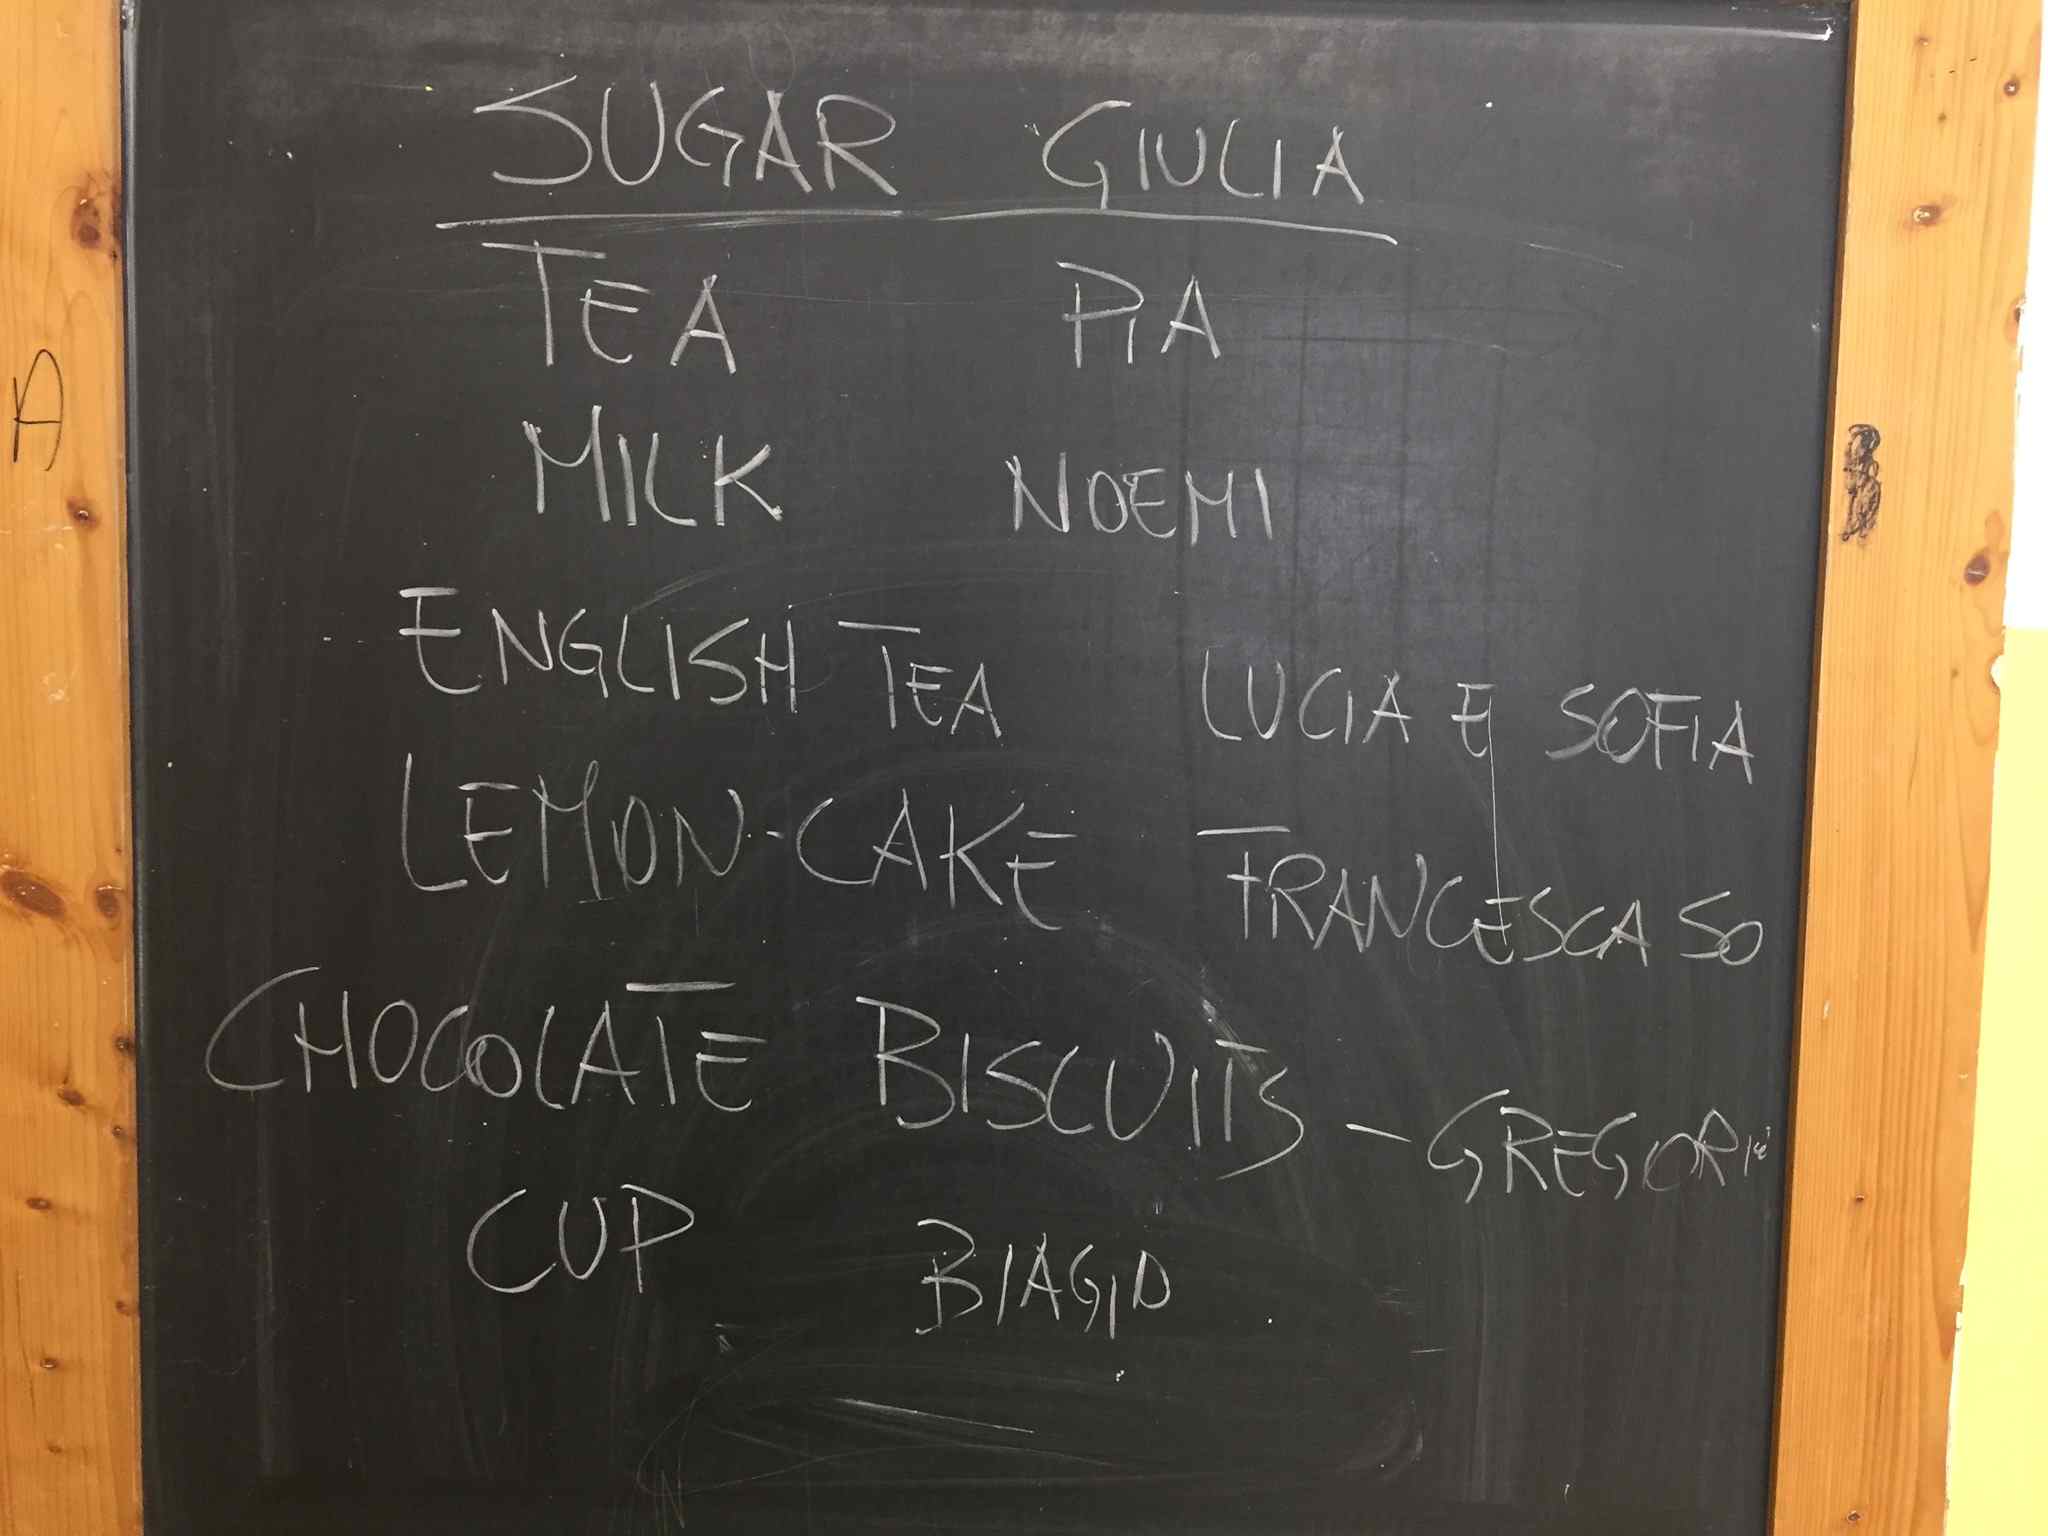 SUGAR GIULIA
TEA PIA
MILK NOEMI
ENGLISH TEA LUCIA E SOFIA
LEMON-CAKE FRANCESCA SO
CHOCOLATE BISCUITS - GREGORIO
CUP BIAGIO
A
B